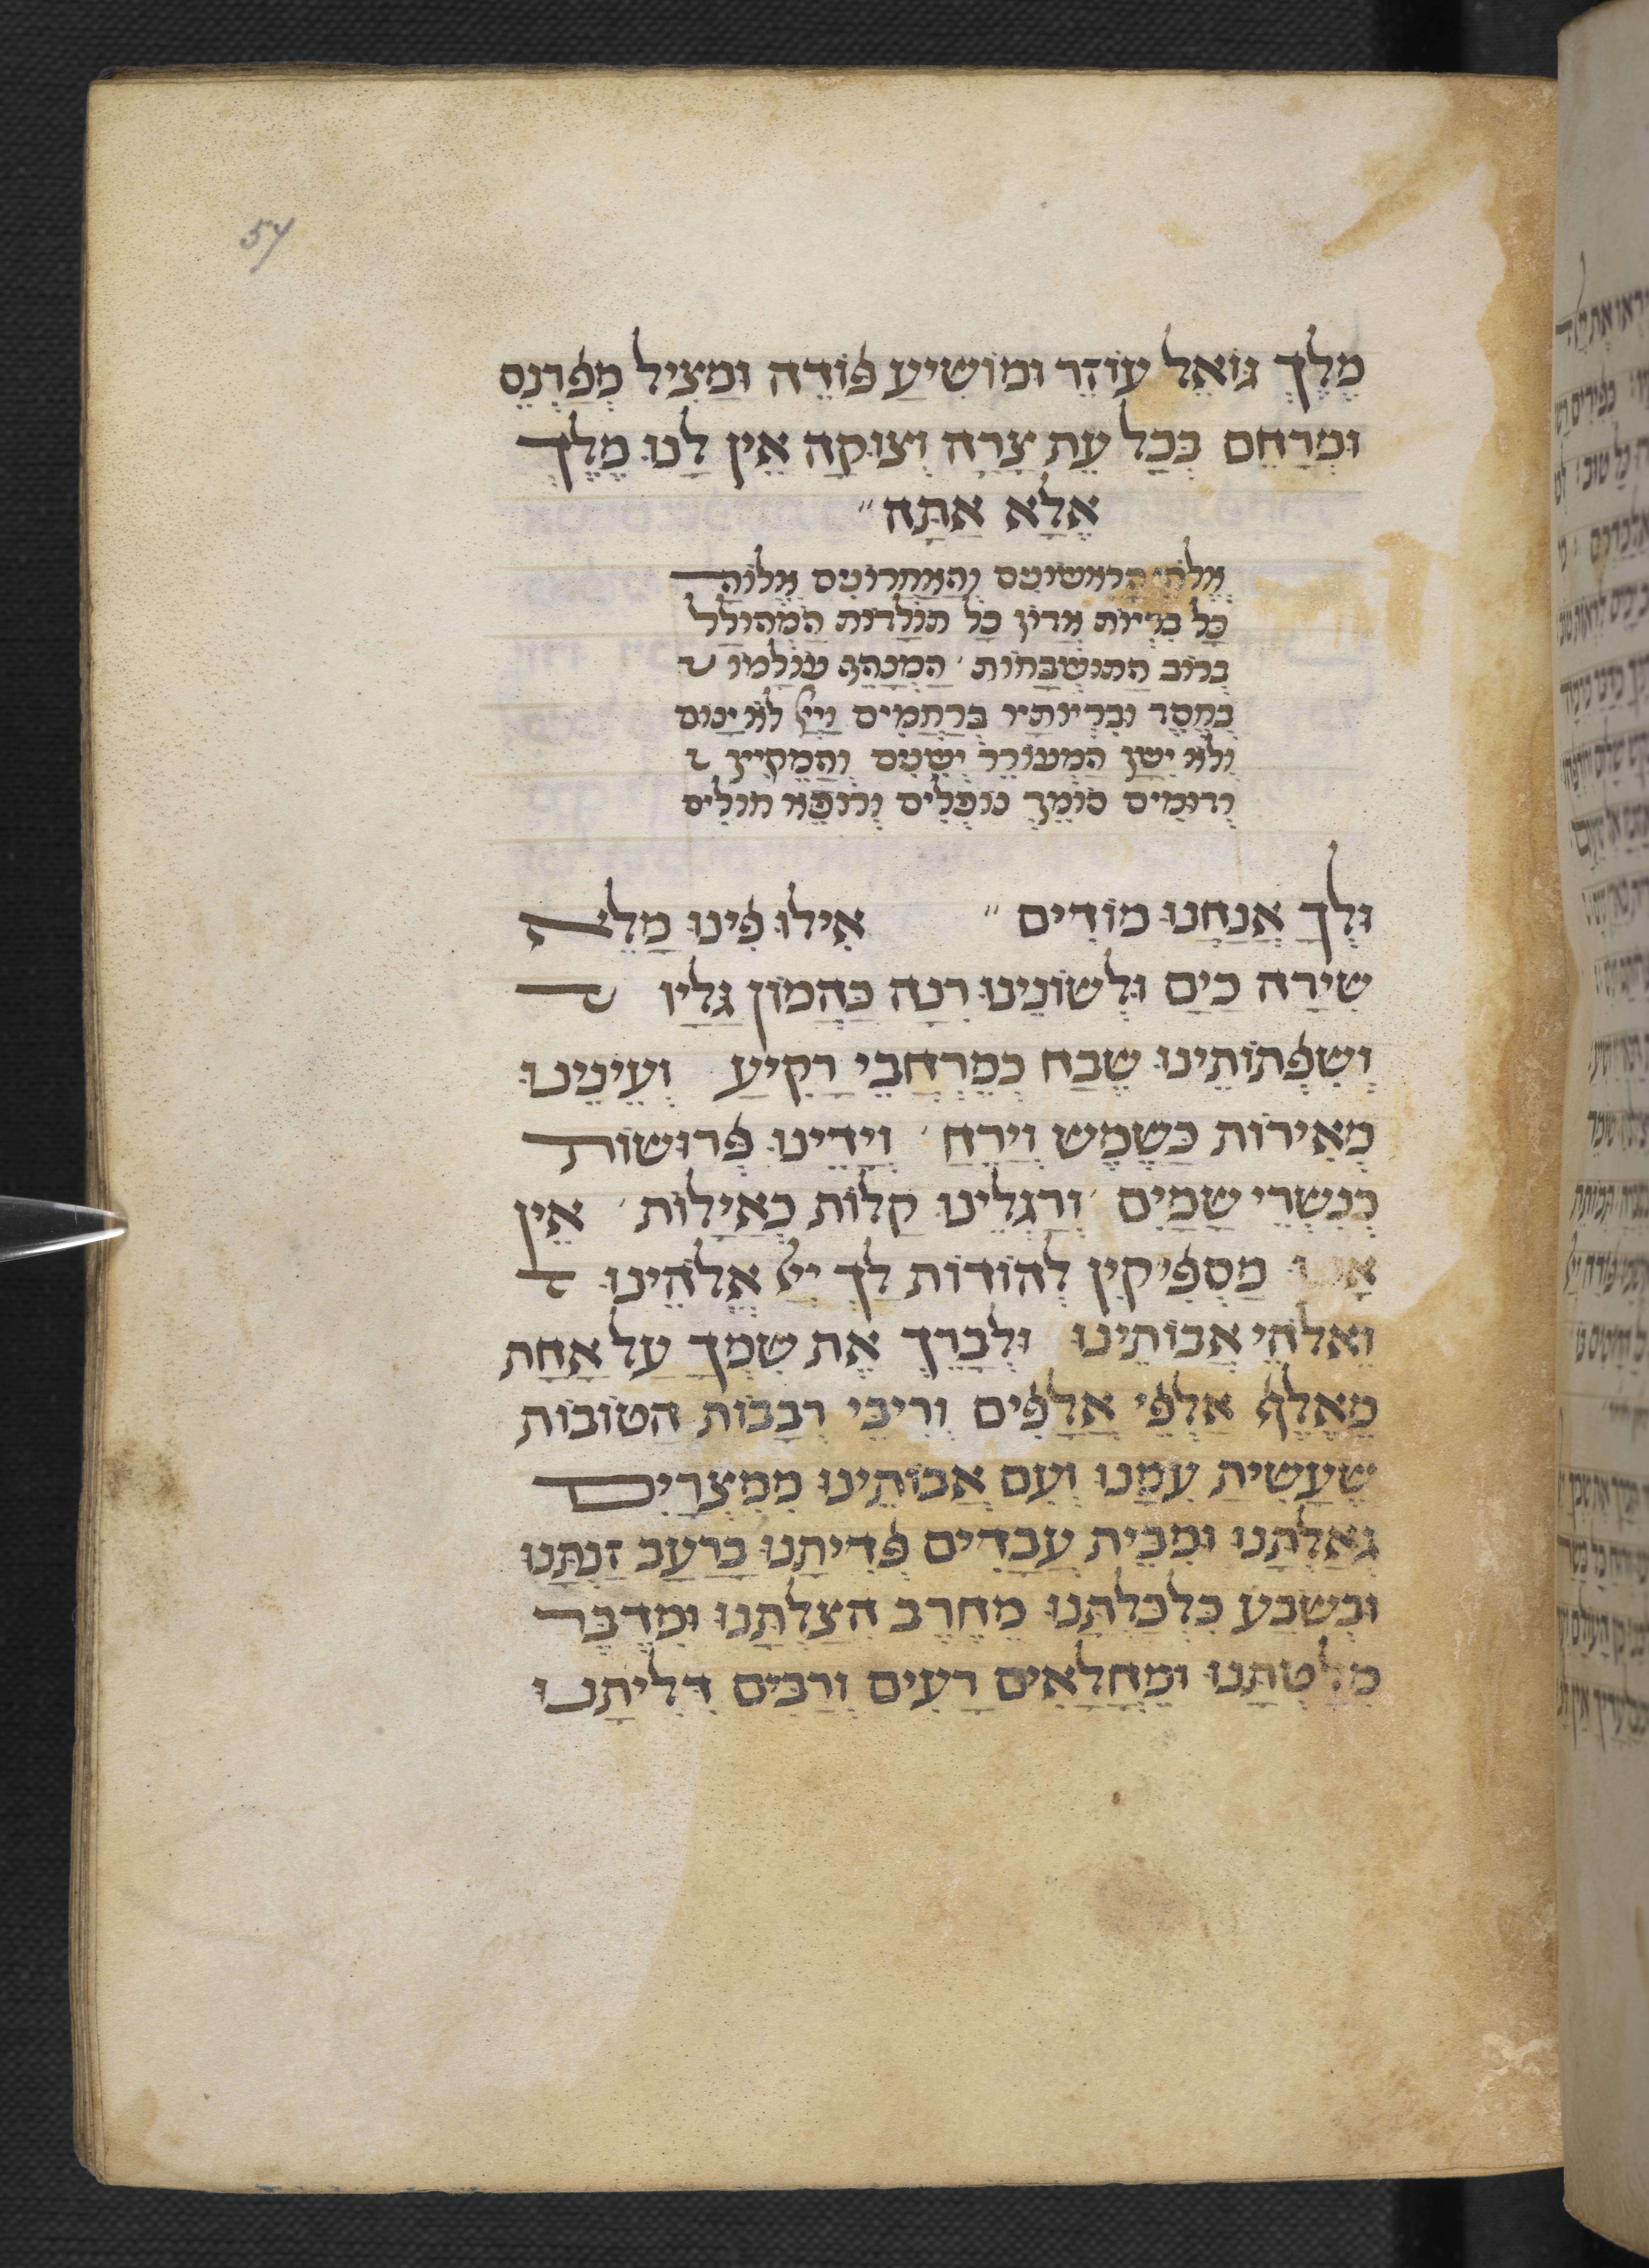 57
מֶלֶךְ גּוֹאֵל עוֹזֵר וּמוֹשִׁיעַ פּוֹדֶה וּמַצִיל מְפַרְנֵס
וּמְרַחֵם בְּכָל עֵת צָרָה וְצוּקָה אֵין לָנוּ מֶלֶךְ
אֶלָא אַתָּה״
אֱלֹהֵי הָרִאשׁוֹנִים וְהָאַחֲרוֹנִים אֱלוֹהַּ
כָּל בְּרִיּוֹת אֲדוֹן כָּל תּוֹלָדוֹת הַמְהוּלָל
בְּרוֹב הַתּוּשְׁבָּחוֹת׳ הַמְנַהֵג עוֹלָמוֹ
בְּחֶסֶד וּבְרִיּוֹתָיו בְּרַחֲמִים וַיְיָ לֹא יָנוּם
וְלֹא יִשָׁן הַמְעוֹרֵר יְשֵׁנִים וְהַמֵקִיץ
רְדוּמִים סוֹמֵךְ נוֹפְלִים וְרוֹפֵא חוֹלִים
וּלְךָ אֲנַחְנוּ מוֹדִים״ אִילוּ פִינוּ מָלֵא
שִׁירָה כַיָם וּלְשׁוֹנֵינוּ רִנָה כַּהֲמוֹן גַּלָיו
וְשִׂפְתוֹתֵינוּ שֶׁבַח כְּמֶרְחֲבֵי רָקִיעַ וְעֵינֵינוּ
מְאִירוֹת כַּשֶׁמֶשׁ וְיָרֵחַ׳ וְיָדֵינוּ פְּרוּשׂוֹת
כְּנִשְׁרֵי שָׁמָיִם׳ וְרַגְלֵינוּ קַלוֹת כָּאַיָלוֹת׳ אֵין
מַסְפִּיקִין לְהוֹדוֹת לָךְ יְיָ אֱלֹהֵינוּ
וֵאלֹהֵי אֲבוֹתֵינוּ וּלְבָרֵךְ אֶת שְׁמָךְ עַל אַחַת
מֵאֶלֶף אַלְפֵי אֲלָפִים וְרִיבֵּי רְבָבוֹת הַטוֹבוֹת
שֶׁעָשִׂיתַ עִמָנוּ וְעִם אֲבוֹתֵינוּ מִמִצְרַיִם
גְאַלְתָּנוּ וּמִבֵּית עֲבָדִים פְּדִיתָנוּ בְּרָעָב זַנְתָּנוּ
וּבְשָׂבָע כִּלְכַּלְתָּנוּ מֵחֶרֶב הִצַלְתָּנוּ וּמִדֶבֶר
מִלַטְתָּנוּ וּמֵחֳלָאִים רָעִים וְרַבִּים דִלִיתָנוּ